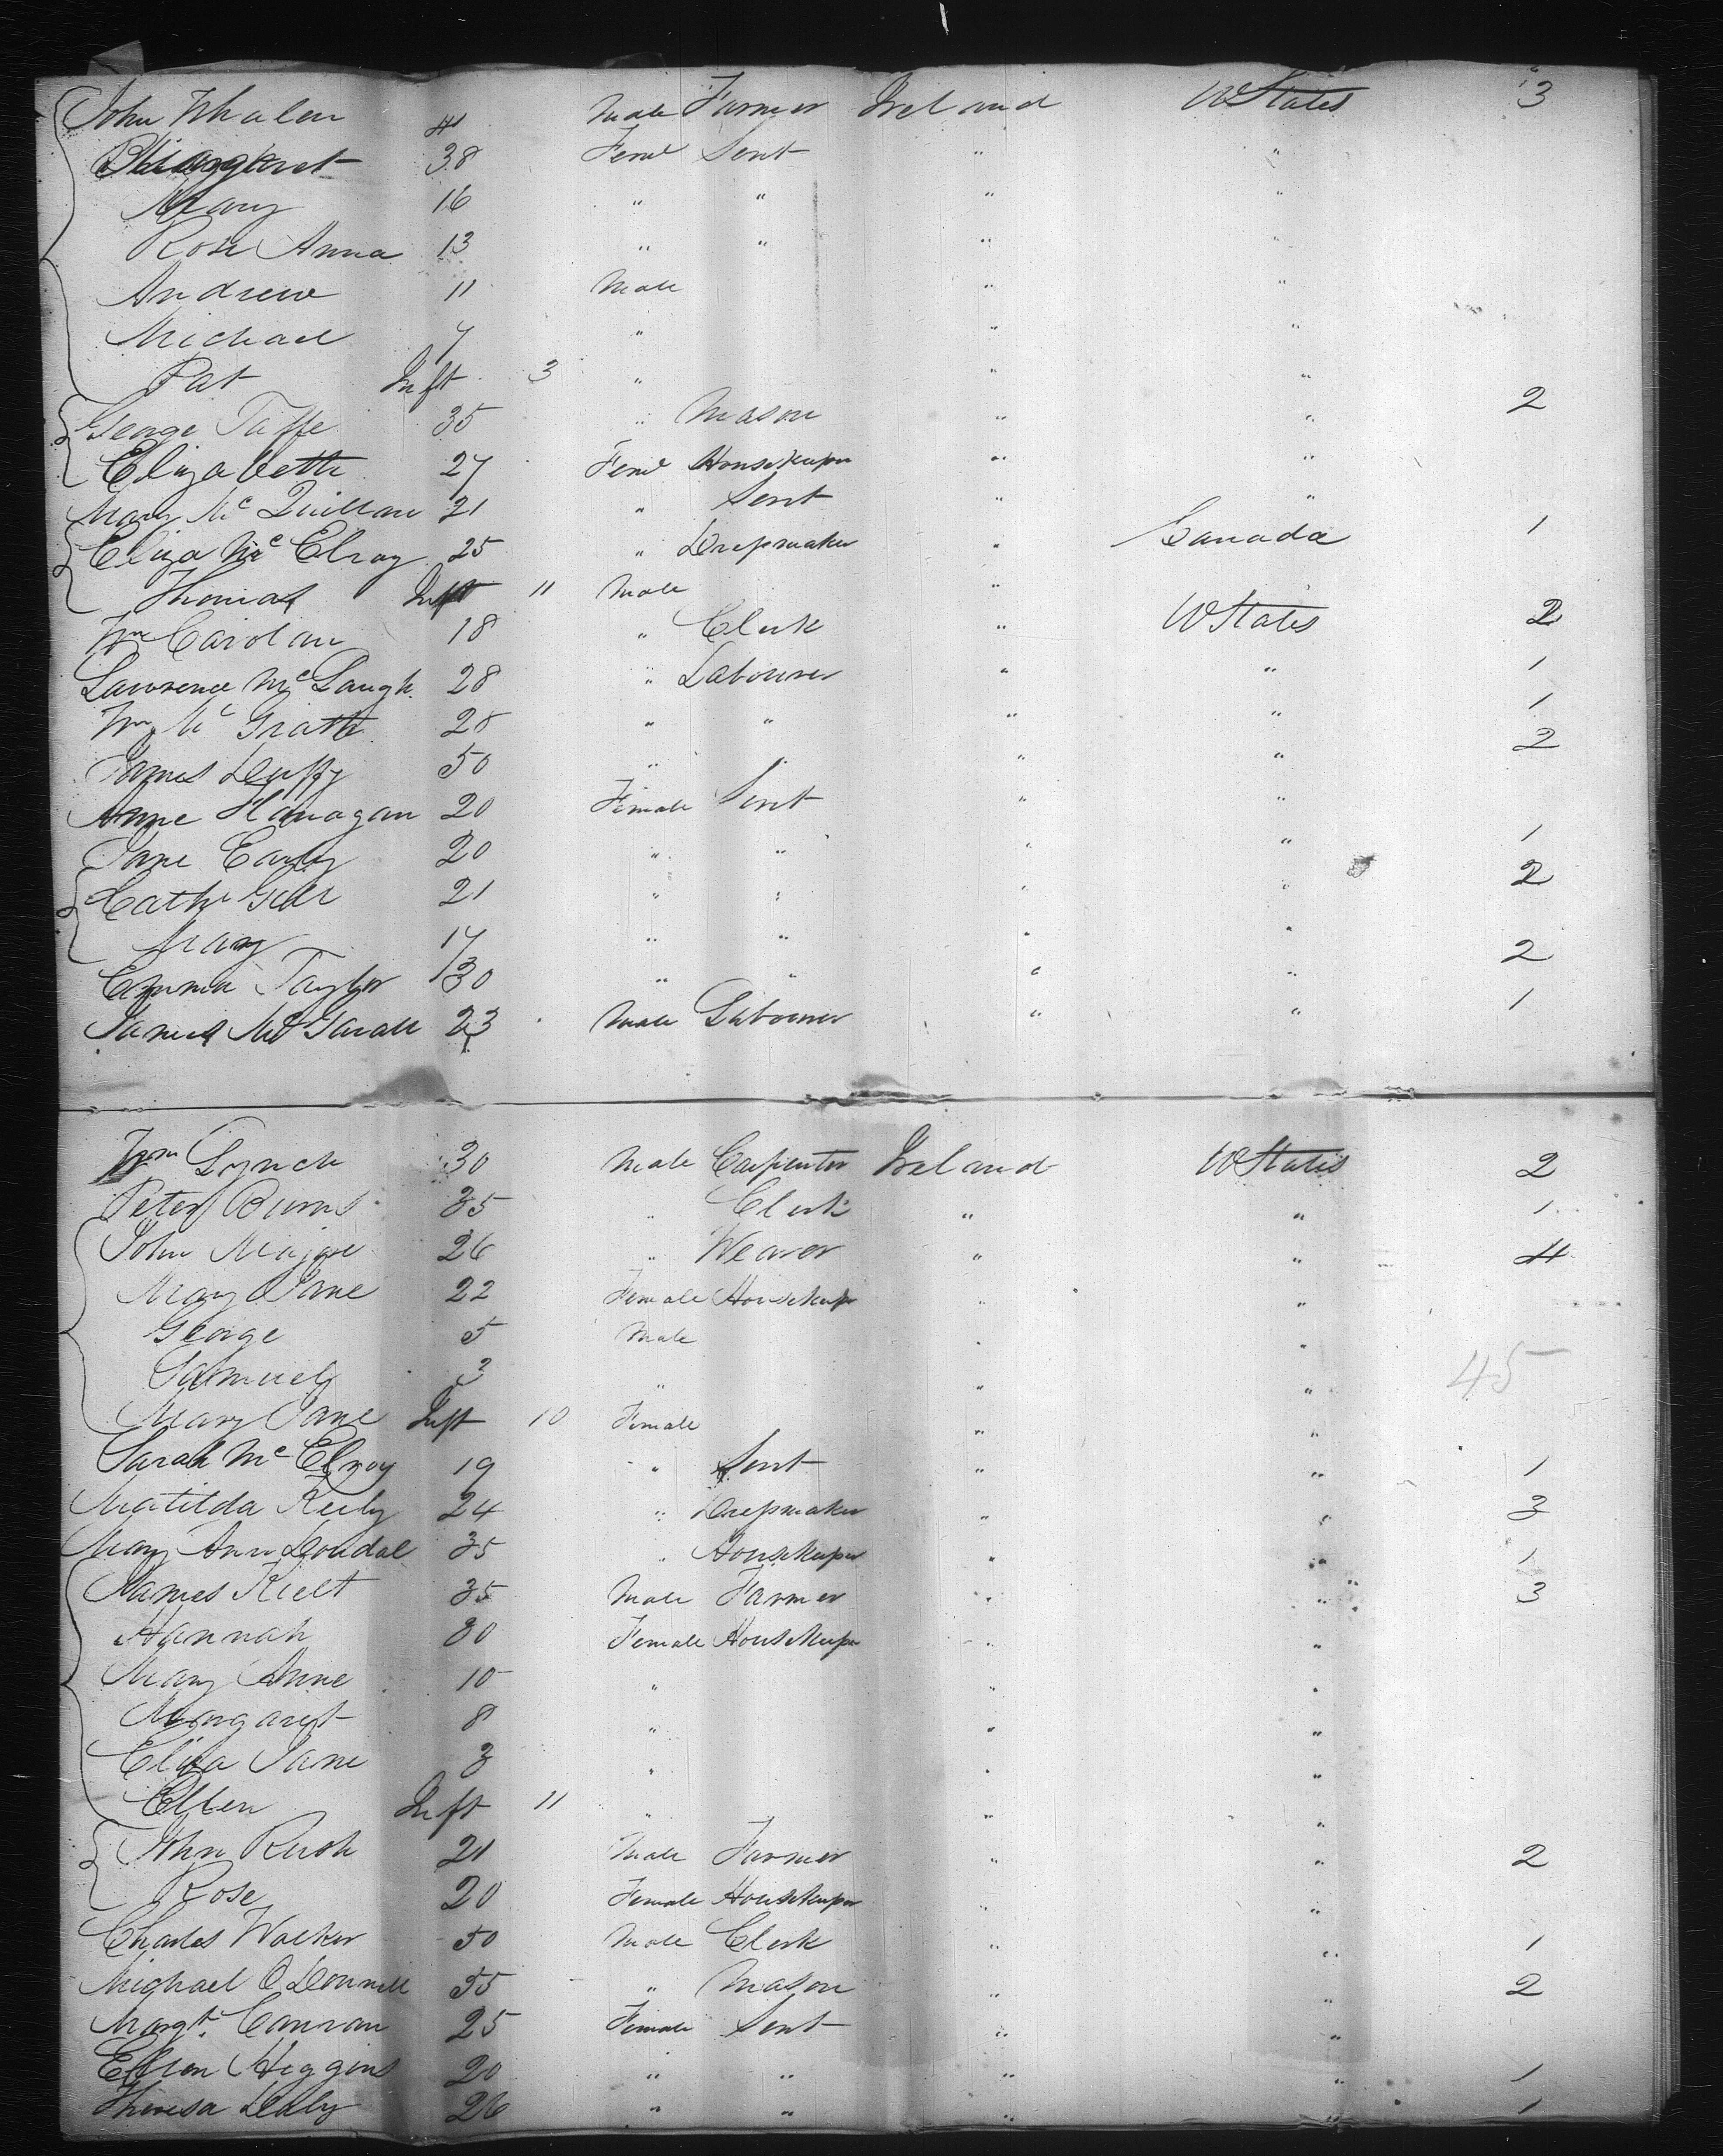 John Whalen 41 Male Farmer Ireland UStates 3
Margaret 38 Feme Servt " "
Mary 16 " " " "
Rose Anna 13 " " " "
Andrew 11 Male " "
Michael 7 " " "
Pat Inft 3 " " "
George Taffe 35 " Mason " " 2
Elizabeth 27 Feme Housekeeper " "
Mary McQuillan 21 " Servt " "
Eliza McElroy 25 " Dressmaker " Canada 1
Thomas Inft 11 Male "
Wm Carolan 18 " Clerk " UStates 2
Lawrence McLaugh. 28 " Labourer " " 1
Wm McGrath 28 " " " " 1
James Duffy 50 " " " " 2
Anne Flanagan 20 Female Servt " "
Jane Early 20 " " " " 1
Cathe Gill 21 " " " " 2
Mary 17 " " " "
Emma Taylor 30 " " " " 2
James 23 Male Labourer " " 1
Wm Lynch 30 Male Carpenter Ireland UStates 2
Peter Burns 35 " Clerk " " 1
John Major 26 " Weaver " " 4
Mary Jane 22 Female Housekeeper " "
George 5 Male " "
Samuel 3 " " "
45
Mary Jane Inft 10 Female " "
Sarah McElroy 19 " Servt " " 1
Matilda Reily 24 " Dressmaker " " 3
Mary Ann Doudal 35 " Housekeeper " " 1
James Kielt 35 Male Farmer " " 3
Hannah 30 Female Housekeeper " "
Mary Anne 10 " " "
Margaret 8 " " "
Eliza Jane 3 " " "
Ellen Inft 11 " " "
John Rush 21 Male Farmer " " 2
Rose 20 Female Housekeeper " "
Charles Walker 50 Male Clerk " " 1
Michael O Donnell 55 " Mason " " 2
Margt. Canran 25 Female Servt " "
Ellen Higgins 20 " " " " 1
Theresa Daly 26 " " " " 1